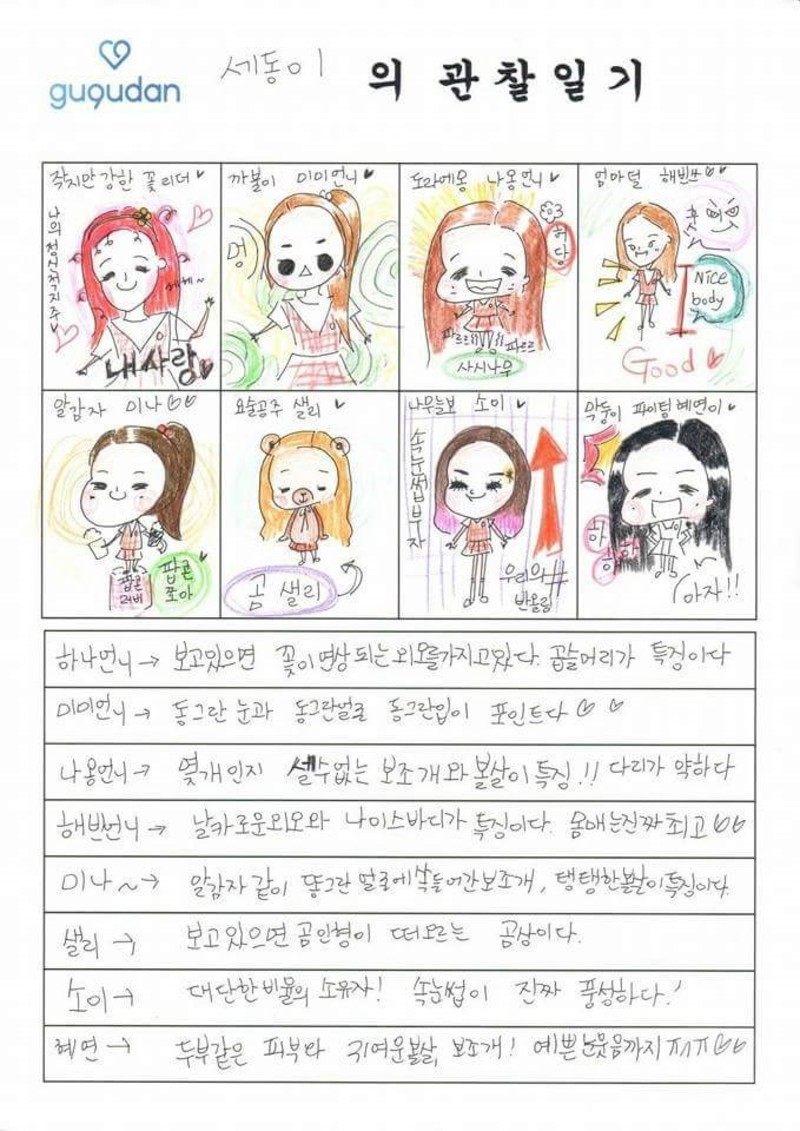 gugudan
세동이 의 관찰일기
작지만강한 꽃리더 ♥
나의정신적지주♥
헤헤~
내사랑♥
까불이 미미언니♥
멍
도라에몽 나용언니♥
허당
파르르 파르르
사시나무
엄마덜 해빈쓰♡♡
Nice body
Good ♥
알감자 미나♡♡
팝콘 러비
팝콘 조아
요술공주 샐리 ♥
곰 샐리
나무늘보 소이 ♥
속눈썹부자
우리의# 반올림
막둥이 파이팅혜연이♥
하 하하
아자!!
하나언니→ 보고있으면 꽃이연상되는외모를가지고있다. 곱슬머리가 특징이다
미미언니→ 동그란눈과 동그란얼굴 동그란입이 포인트다♡♡
나용언니→ 몇개인지 셀수없는 보조개와볼살이특징!! 다리가 약하다
해빈언니→ 날카로운외모와 나이스바디가 특징이다. 몸매는진짜최고♡♡
미나~→ 알감자같이 똥그란 얼굴에쏙들어간보조개, 탱탱한볼살이특징이다.
샐리→ 보고있으면곰인형이 떠오르는 곰상이다.
소이→ 대단한비율의소유자! 속눈썹이 진짜 풍성하다!
혜연→ 두부같은 피부와 귀여운볼살, 보조개! 예쁜눈웃음까지ㅠㅅㅠ♡♡